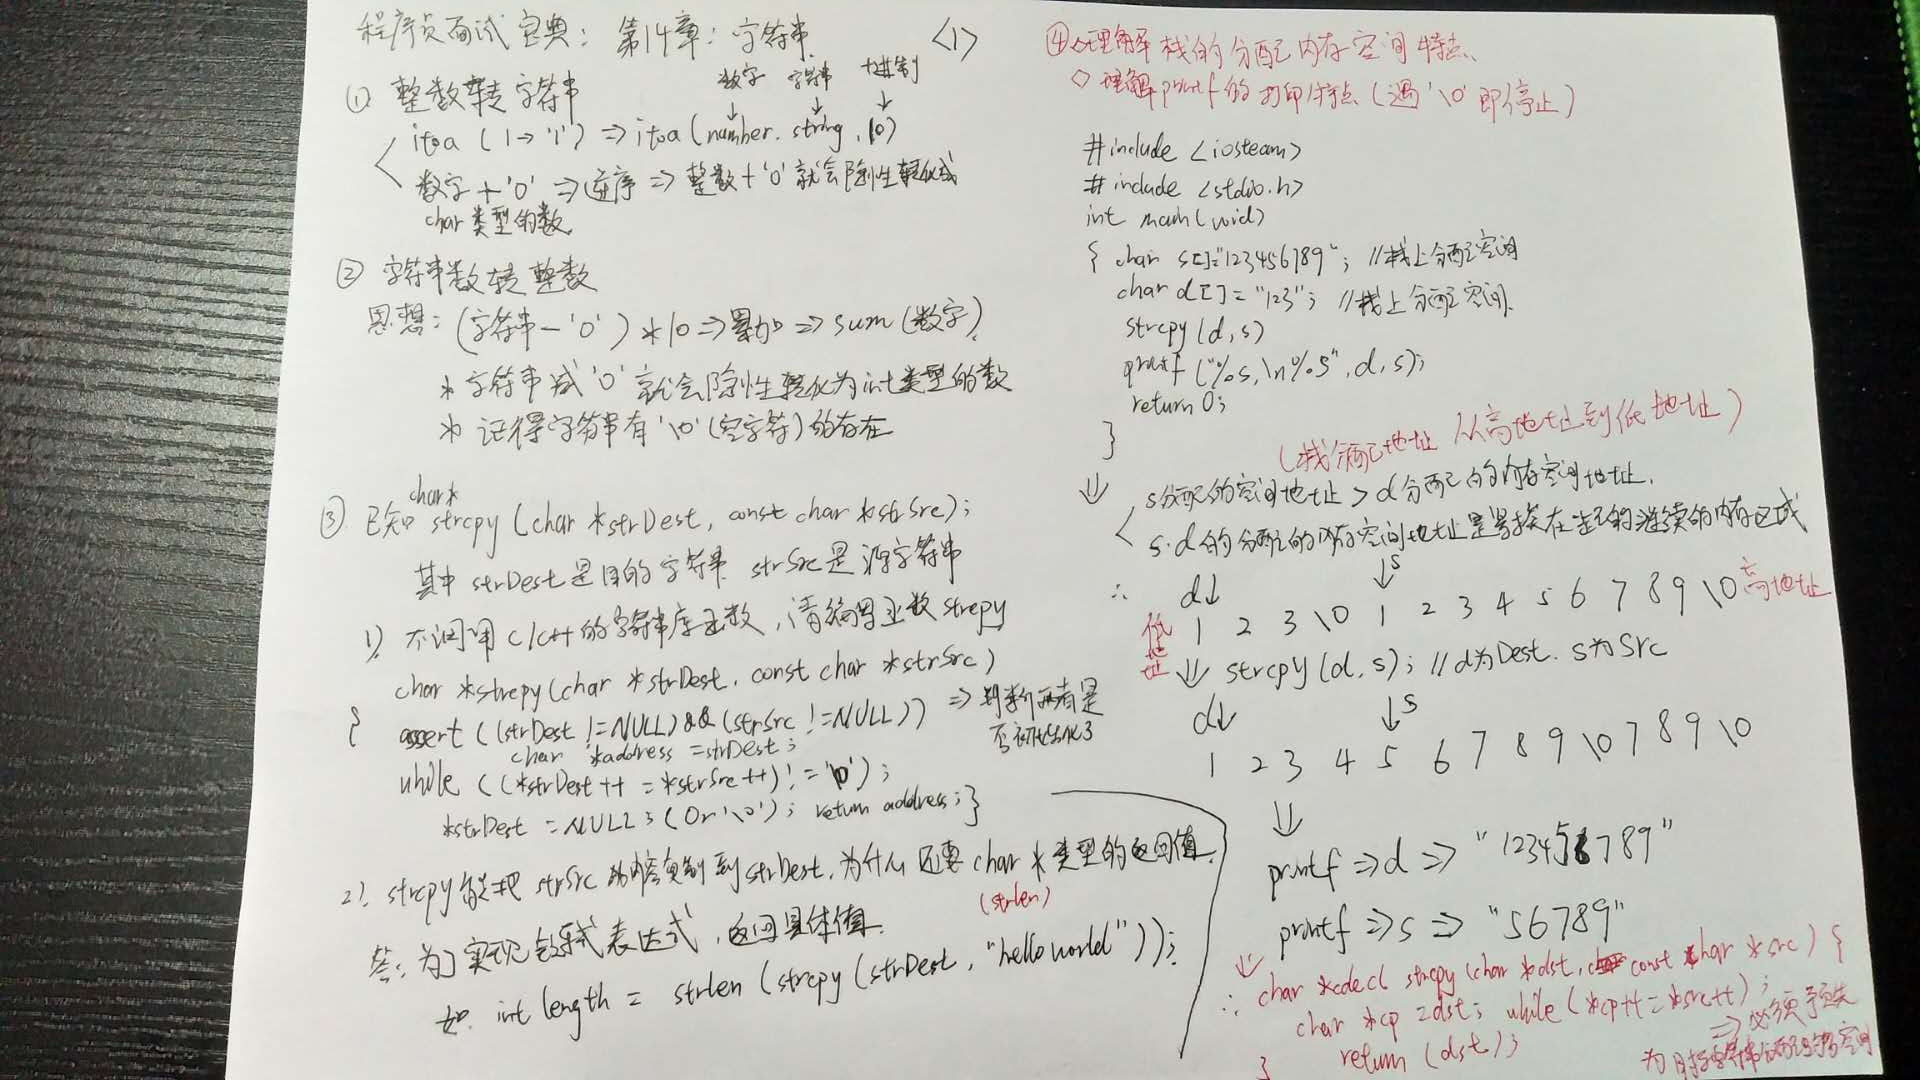 程序员面试宝典：第14章：字符串 <1>
① 整数转字符串
数字 字符串 十进制
itoa (1→'1') ⇒ itoa (number, string, 10)
数字 + '0' ⇒ 逆序 ⇒ 整数+'0'就会隐性转化成
char类型的数
② 字符串数转整数
思想：(字符串-'0') *10 ⇒ 累加 ⇒ sum (数字).
* 字符串减'0'就会隐性转化为int类型的数
* 记得字符串有'\0'(空字符)的存在
③ 已知 char* strcpy (char *strDest, const char *strSrc);
其中 strDest是目的字符串 strSrc是源字符串
1) 不调用C/C++的字符串库函数，请编写函数 strcpy
char *strcpy(char *strDest, const char *strSrc)
{ assert ((strDest != NULL) && (strSrc != NULL)) ⇒ 判断两者是
否初始化了
char *address = strDest;
while ((*strDest++ = *strSrc++) != '\0');
*strDest = NULL; (Or'\0'); return address; }
2). strcpy能把 strSrc 的内容复制到strDest, 为什么还要 char * 类型的返回值.
(strlen)
答：为了实现链式表达式，返回具体值.
如. int length = strlen (strcpy (strDest, "hello world"));
④ △理解栈的分配内存空间特点、
◇ 理解printf的打印特点 (遇'\0'即停止)
#include <iosteam>
#include <stdio.h>
int main(void)
{ char s[]="123456789"; //栈上分配空间
char d[]="123"; //栈上分配空间.
strcpy (d, s)
printf ("%s,\n%s", d, s);
return 0;
}
(栈分配地址 从高地址到低地址)
⇓ s分配的空间地址 > d分配的内存空间地址.
s.d的分配的内存空间地址是紧挨在一起的连续的内存区域
∴ d↓ ↓s
低地址 1 2 3 \0 1 2 3 4 5 6 7 8 9 \0 高地址
⇓ strcpy (d, s); // d为Dest. s为Src
d↓ ↓s
1 2 3 4 5 6 7 8 9 \0 7 8 9 \0
⇓
printf ⇒ d ⇒ "123456789"
printf ⇒ s ⇒ "56789"
⇓
∴ char *cdecl strcpy (char *dst, const char *src) {
char *cp = dst; while (*cp++ = *src++);
return (dst);
}
⇒ 必须予先
为目标字符串分配足够空间